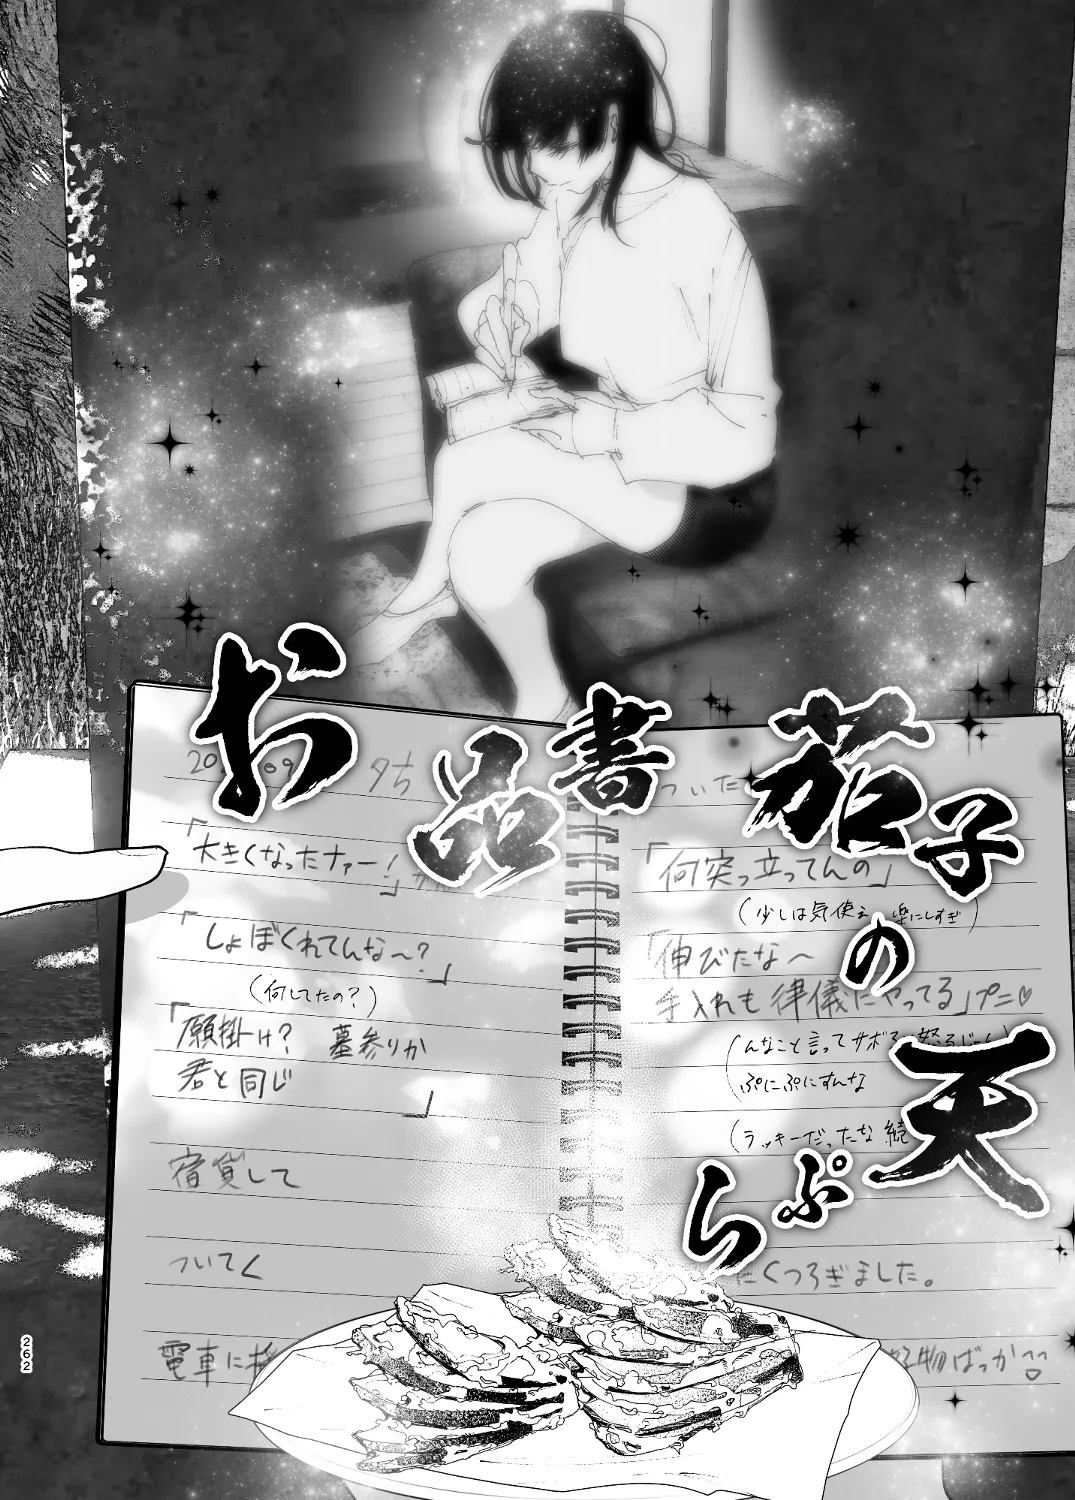 お品書
茄子の天ぷら
夕方
「大きくなったナァー!」
「しょぼくれてんな〜?」
(何してたの?)
「願掛け? 墓参りか
君と同じ
」
宿賃して
ついてく
電車に
ついた
「何突っ立ってんの」
(少しは気使え 楽にしすぎ)
「伸びたな〜
手入れも律儀にやってる」プニ♡
(んなこと言ってサボると怒るじゃん)
ぷにぷにすんな
(ラッキーだったな 続
くつろぎました。
好物ばっか
262